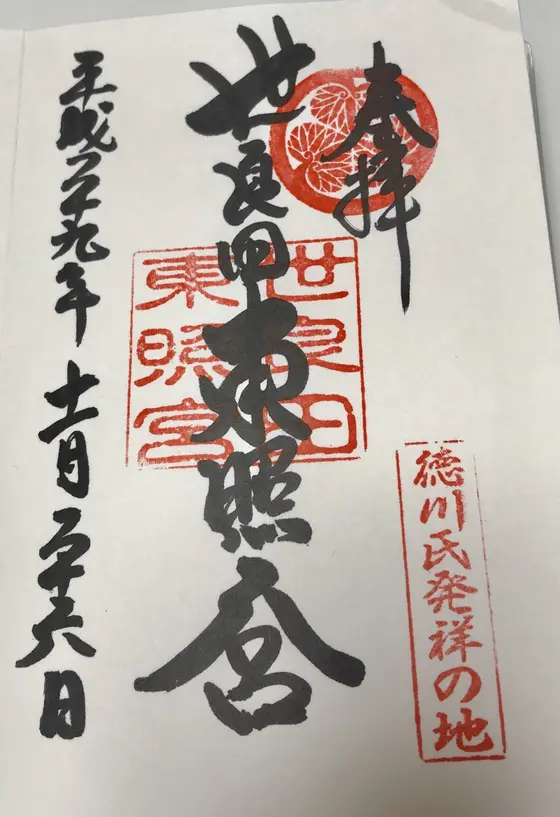 奉拝
徳川氏発祥の地
世良田東照宮
世良田
東照宮
平成二十九年十一月二十六日